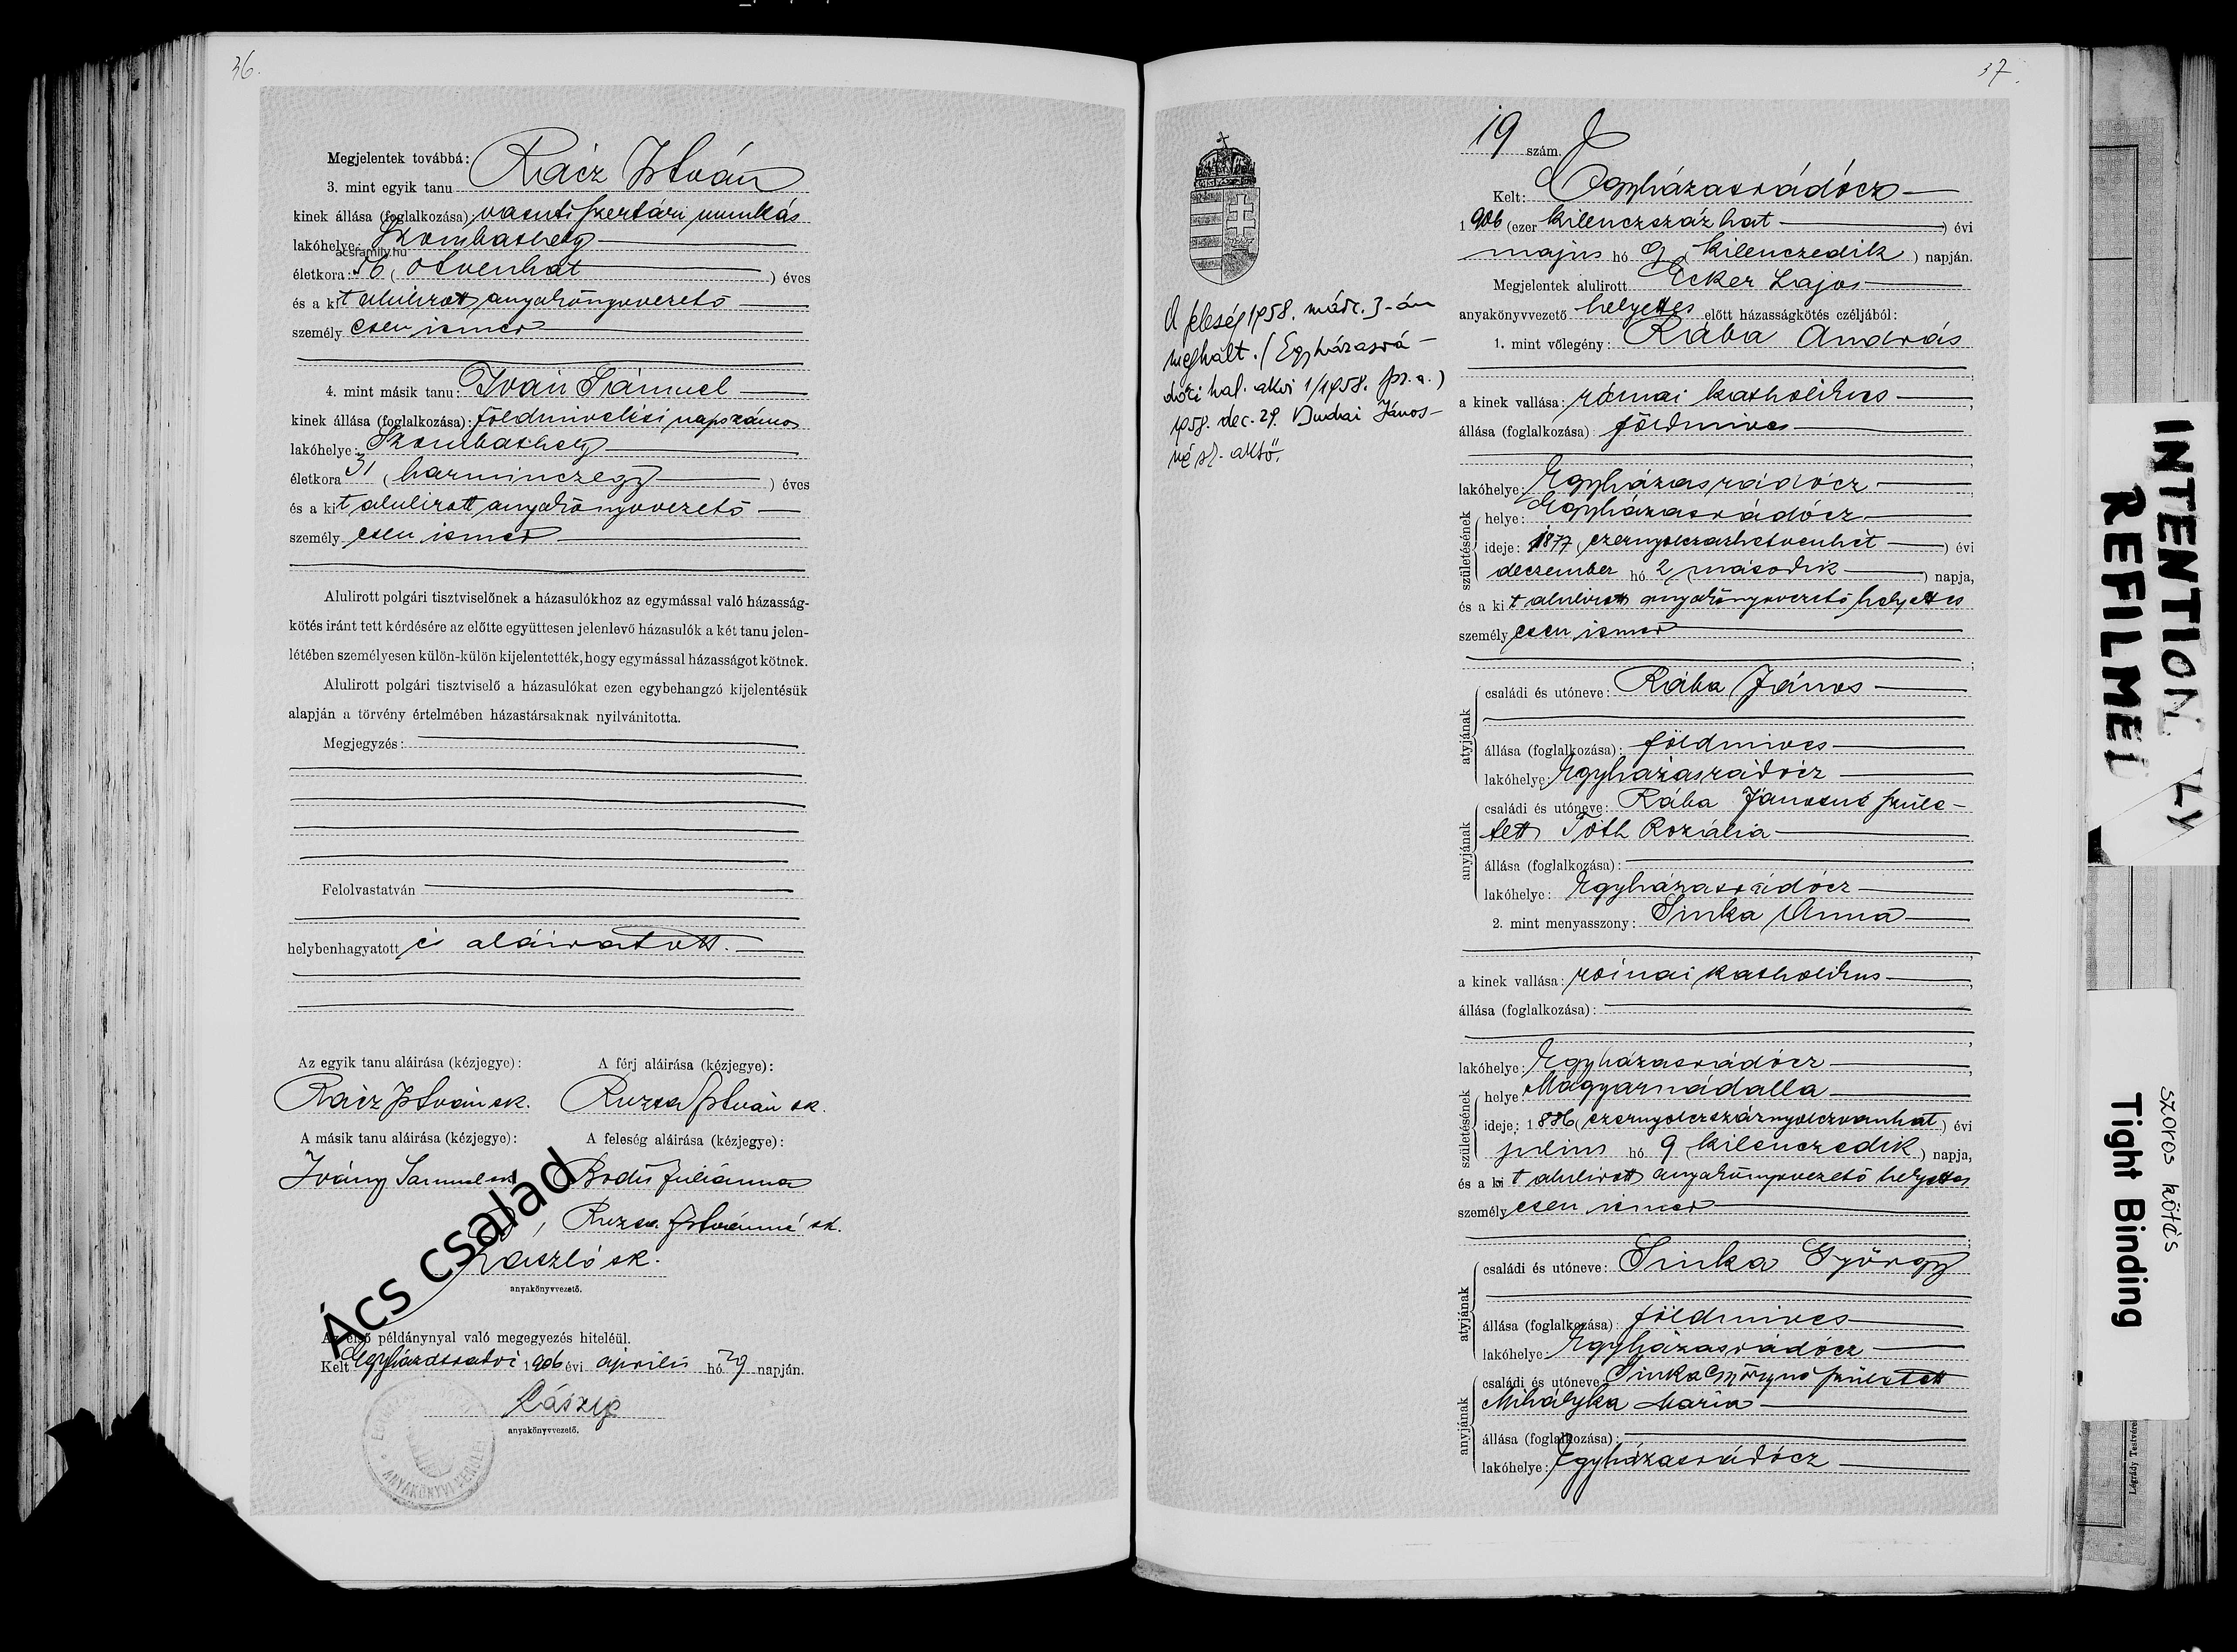 36.
Megjelentek továbbá:
3. mint egyik tanu Rácz István
kinek állása (foglalkozása): vasuti szertári munkás
lakóhelye: Szombathely
acsfamily.hu
életkora: 56 (ötvenhat) éves
és a kit alulirott anyakönyvvezető
személyesen ismer
4. mint másik tanu: Iván Sámuel
kinek állása (foglalkozása): földmivelési napszámos
lakóhelye: Szombathely
életkora 31 (harminczegy) éves
és a kit alulirott anyakönyvvezető
személyesen ismer
Alulirott polgári tisztviselőnek a házasulókhoz az egymással való házasság-
kötés iránt tett kérdésére az előtte együttesen jelenlevő házasulók a két tanu jelen-
létében személyesen külön-külön kijelentették, hogy egymással házasságot kötnek.
Alulirott polgári tisztviselő a házasulókat ezen egybehangzó kijelentésük
alapján a törvény értelmében házastársaknak nyilvánitotta.
Megjegyzés:
Felolvastatván
helybenhagyatott és aláiratott.
Az egyik tanu aláirása (kézjegye): A férj aláirása (kézjegye):
Rácz István sk. Ruzsa István sk.
A másik tanu aláirása (kézjegye): A feleség aláirása (kézjegye):
Ivány Samuel sk Bodis Juliánna
Ruzsa Istvánné sk.
László sk.
anyakönyvvezető.
Ács család
Az első példánynyal való megegyezés hiteléül.
Kelt Egyházasradócz 1906 évi április hó 29 napján.
László
anyakönyvvezető.
37.
19 szám.
Kelt: Egyházasrádócz
1906 (ezer kilenczszáz hat) évi
május hó 9 (kilenczedik) napján.
Megjelentek alulirott Ecker Lajos
anyakönyvvezető helyettes előtt házasságkötés czéljából:
1. mint vőlegény: Rába András
a kinek vallása: római katholikus
állása (foglalkozása): földmives
lakóhelye: Egyházasrádócz
születésének helye: Egyházasrádócz
ideje: 1877 (ezernyolczszázhetvenhét) évi
deczember hó 2 (második) napja,
és a kit alulirott anyakönyvvezető helyettes
személyesen ismer
atyjának családi és utóneve: Rába János
állása (foglalkozása): földmives
lakóhelye: Egyházasrádócz
anyjának családi és utóneve: Rába Jánosné szüle-
tett Tóth Rozália
állása (foglalkozása):
lakóhelye: Egyházasrádócz
2. mint menyasszony: Sinka Anna
a kinek vallása: római katholikus
állása (foglalkozása):
lakóhelye: Egyházasrádócz
születésének helye Magyarnádalla
ideje: 1886 (ezernyolczszáznyolczvanhat) évi
julius hó 9 (kilenczedik) napja,
és a kit alulirott anyakönyvvezető helyettes
személyesen ismer
atyjának családi és utóneve: Sinka György
állása (foglalkozása): földmives
lakóhelye: Egyházasrádócz
anyjának családi és utóneve Sinka Györgyné született
Mihályka Mária
állása (foglalkozása):
lakóhelye: Egyházasrádócz
A feleség 1958. márc. 3-án
meghalt. (Egyházasrá-
dóci hal. akvi 1/1958. fsz. a.)
1958. dec. 29. Budai János-
né
INTENTIONALLY
REFILMED
szoros kötés
Tight Binding
Légrády Testvérek